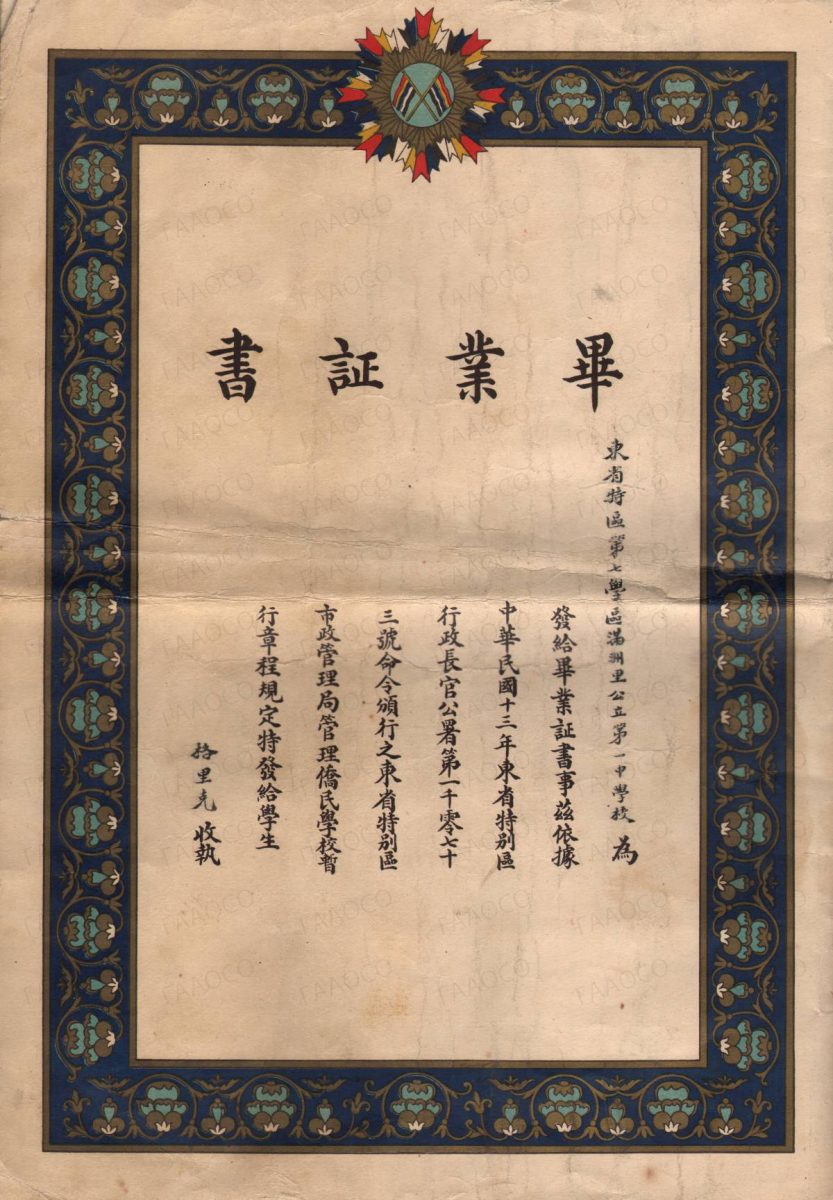 畢業証書
東省特區第七學區滿洲里公立第一中學校為
發給畢業証書事茲依據
中華民國十三年東省特別區
行政長官公署第一千零七十
三號命令頒行之東省特別區
市政管理局管理僑民學校暫
行章程規定特發給學生
格里克收執
ГААОСО